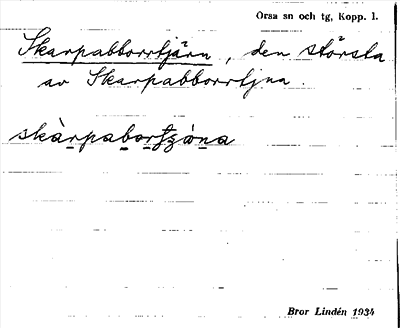 Orsa sn och tg, Kopp. l.
Skarpabborrtjärn, den största
av Skarpabborrtjna.
skàrpabortʒòna
Bror Lindén 1934